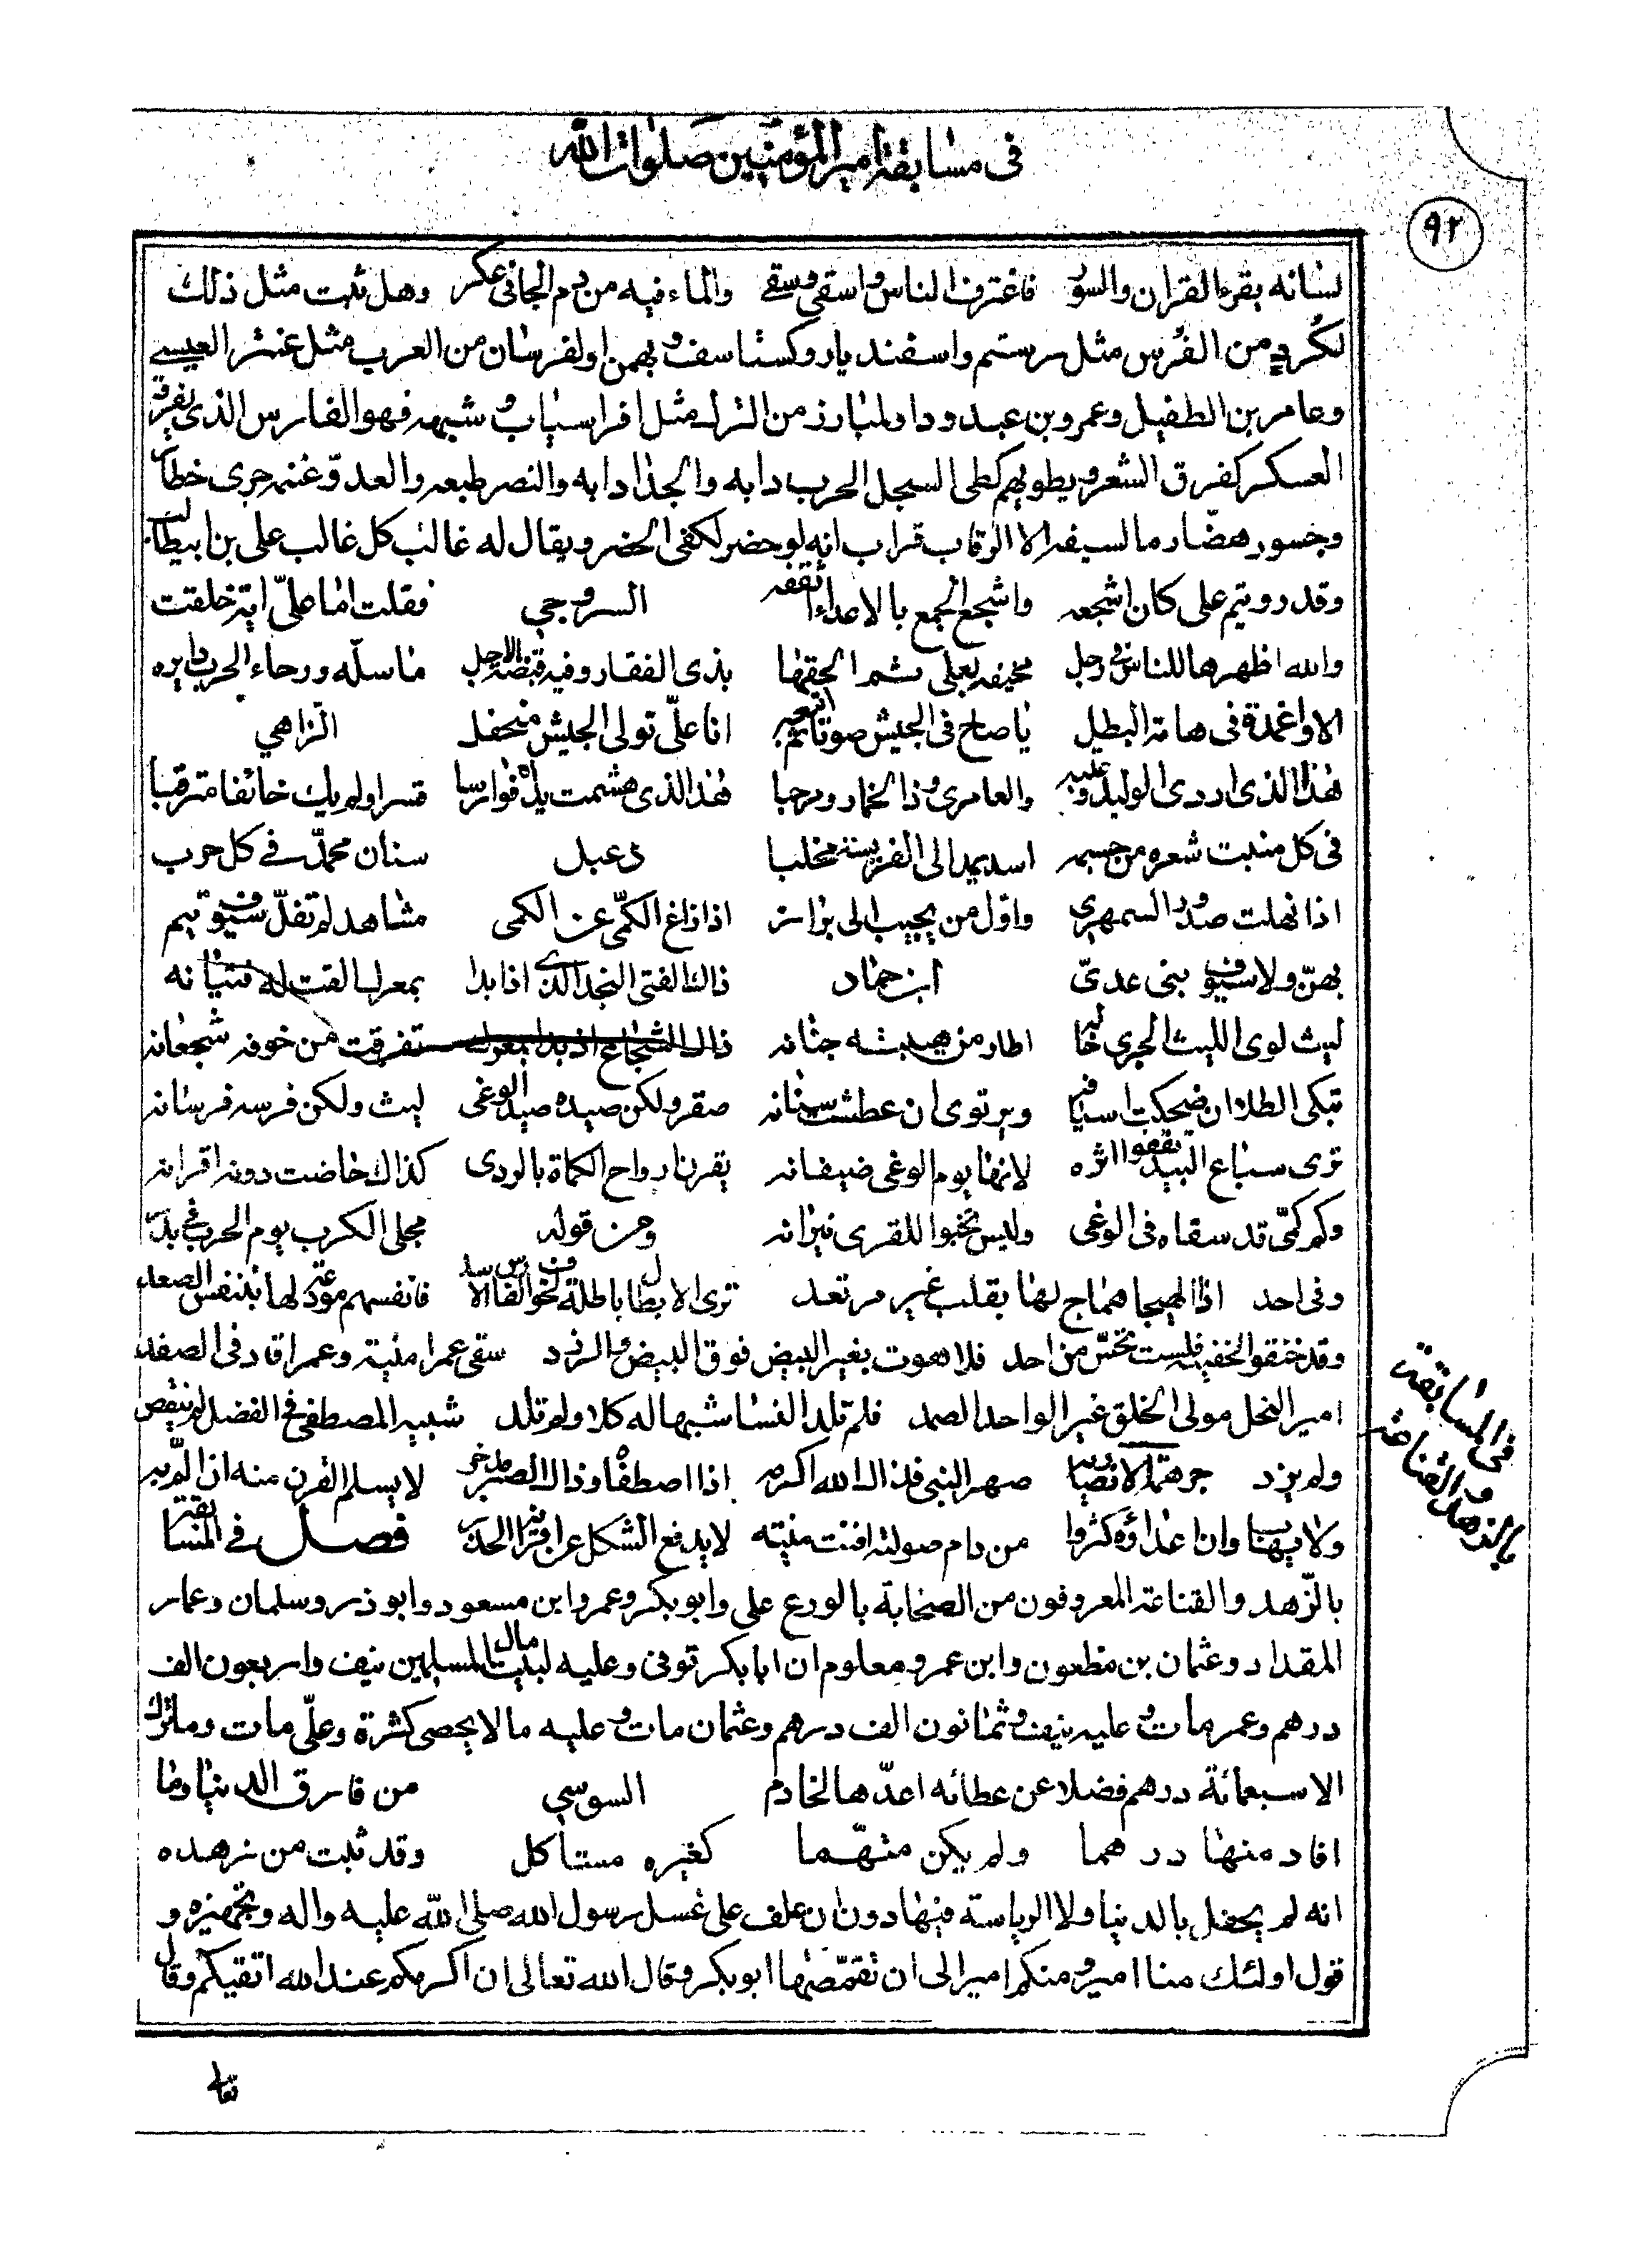 فى مسابقة امير المؤمنين صلوات الله
٩٢
لسانه يقرء القران والسور فاغترف الناس واستقى وسقى والماء فيه من دم الجانى عكر وهل ثبت مثل ذلك
لكُردٍ من الفُرس مثل رستم واسفنديار وكستاسف وبهمن او لفرسان من العرب مثل عنتر العبسى
وعامر بن الطفيل وعمرو بن عبد ود او لمبارز من الترك مثل افراسياب وشبهه فهو الفارس الذى يفرق
العسكر كفرق الشعر ويطويهم كطى السجل الحرب دابه والجد ادابه والنصر طبعه والعدو غنمه جرى خطار
وجسور هصّار ما لسيفه الا الرقاب قراب انه لو حضر لكفى الحضر ويقال له غالب كل غالب على بن ابيطالب
وقد رويتم على كان اشجعه واشجع الجمع بالاعداء اثقفه السروجي فقلت اما علىّ اية خلقت
والله اظهرها للناس فى رجل بذى الفقار وفيه قبضة الاجل ما سلّه ورحاء الحرب دايره
الا واغمدة فى هامة البطل يا صاح فى الجيش صوتا انا علىّ تولى الجيش منجفل الزاهي
هذا الذى اردى الوليد وعتبه والعامرى وذا الخمار ومرحبا هذا الذى هشمت يداه فوارسا قسرا ولم يك خائفا مترقبا
فى كل منبت شعره من جسمه اسد يمد الى الفريسة مخلبا دعبل سنان محمّد فى كل حرب
اذا نهلت صدور السمهرى واوّل من يجيب الى براز اذا زاغ الكمّى عن الكمى مشاهد لم تفلّ سيوف تيم
بهنّ ولا سيوف بنى عدىّ ابن حماد ذاك الفتى النجد الذى اذا بدا بمعرك القت له فتيانه
ليث لوى الليث الجرى خاليه اطار من هيبته جنانه ذاك الشجاع اذ بدا بمعرك تفرقت من خوفه شجعانه
تبكى الطلا ان ضحكت اسيافه ويرتوى ان عطشت سنانه صقر ولكن صيده صيد الوغى ليث ولكن فرسه فرسانه
ترى سباع البيد تقفوا اثره لانها يوم الوغى ضيفانه يقرن ارواح الكماة بالردى كذاك خاضت دونه اقرانه
وكم كمّى قد سقاه فى الوغى وليس تخبوا للقرى نيرانه ومن قوله مجلى الكرب يوم الحرب فى بدر
وفى احد اذا الهيجا هاج لها بقلب غير مرتعد ترى الابطال باطلة لخوف الفارس الاسد فانفسهم مودعة لها بتنفس الصعداء
وقد خنقوا لخفيه فلست تحسّ من احد فلا صوت بغير البيض فوق البيض والزرد سقى عمرا منيته وعمرا قاد فى الصفد
امير النحل مولى الخلق غير الواحد الصمد فلم تلد النسا شبها له كلا ولم تلد شبيه المصطفى فى الفضل لم ينقص
ولم يزد صهر النبى فذاك الله اكرمه اذا اصطفاه وذاك الصهر مدخر لا يسلم القرن منه ان الّم به
ولا يهاب وان اعداؤه كثروا من رام صولته افنت منيته لا يدفع الشكل عن اقرانه الحذر فصل فى المسابقة
بالزّهد والقناعة المعروفون من الصحابة بالورع على وابو بكر وعمر وابن مسعود وابو ذر وسلمان وعمار
المقداد وعثمان بن مظعون وابن عمر ومعلوم ان ابا بكر توفى وعليه لبيت مال المسلمين نيف واربعون الف
درهم وعمر مات وعليه نيف وثمانون الف درهم وعثمان مات وعليه ما لا يحصى كثرة وعلىّ مات وما ترك
الا سبعمائة درهم فضلا عن عطائه اعدّها لخادم السوسي من فارق الدنيا وما
افاد منها درهما ولم يكن متهّما كغيره مستأكل وقد ثبت من زهده
انه لم يحفل بالدنيا ولا الرياسة فيها دون ان عكف على غسل رسول الله صلى الله عليه واله وتجهيزه و
قول اولئك منا امير ومنكم امير الى ان تقمّصها ابو بكر وقال الله تعالى ان اكرمكم عند الله اتقيكم وقال
تعالى
فى المسابقة
بالزهد والقناعة